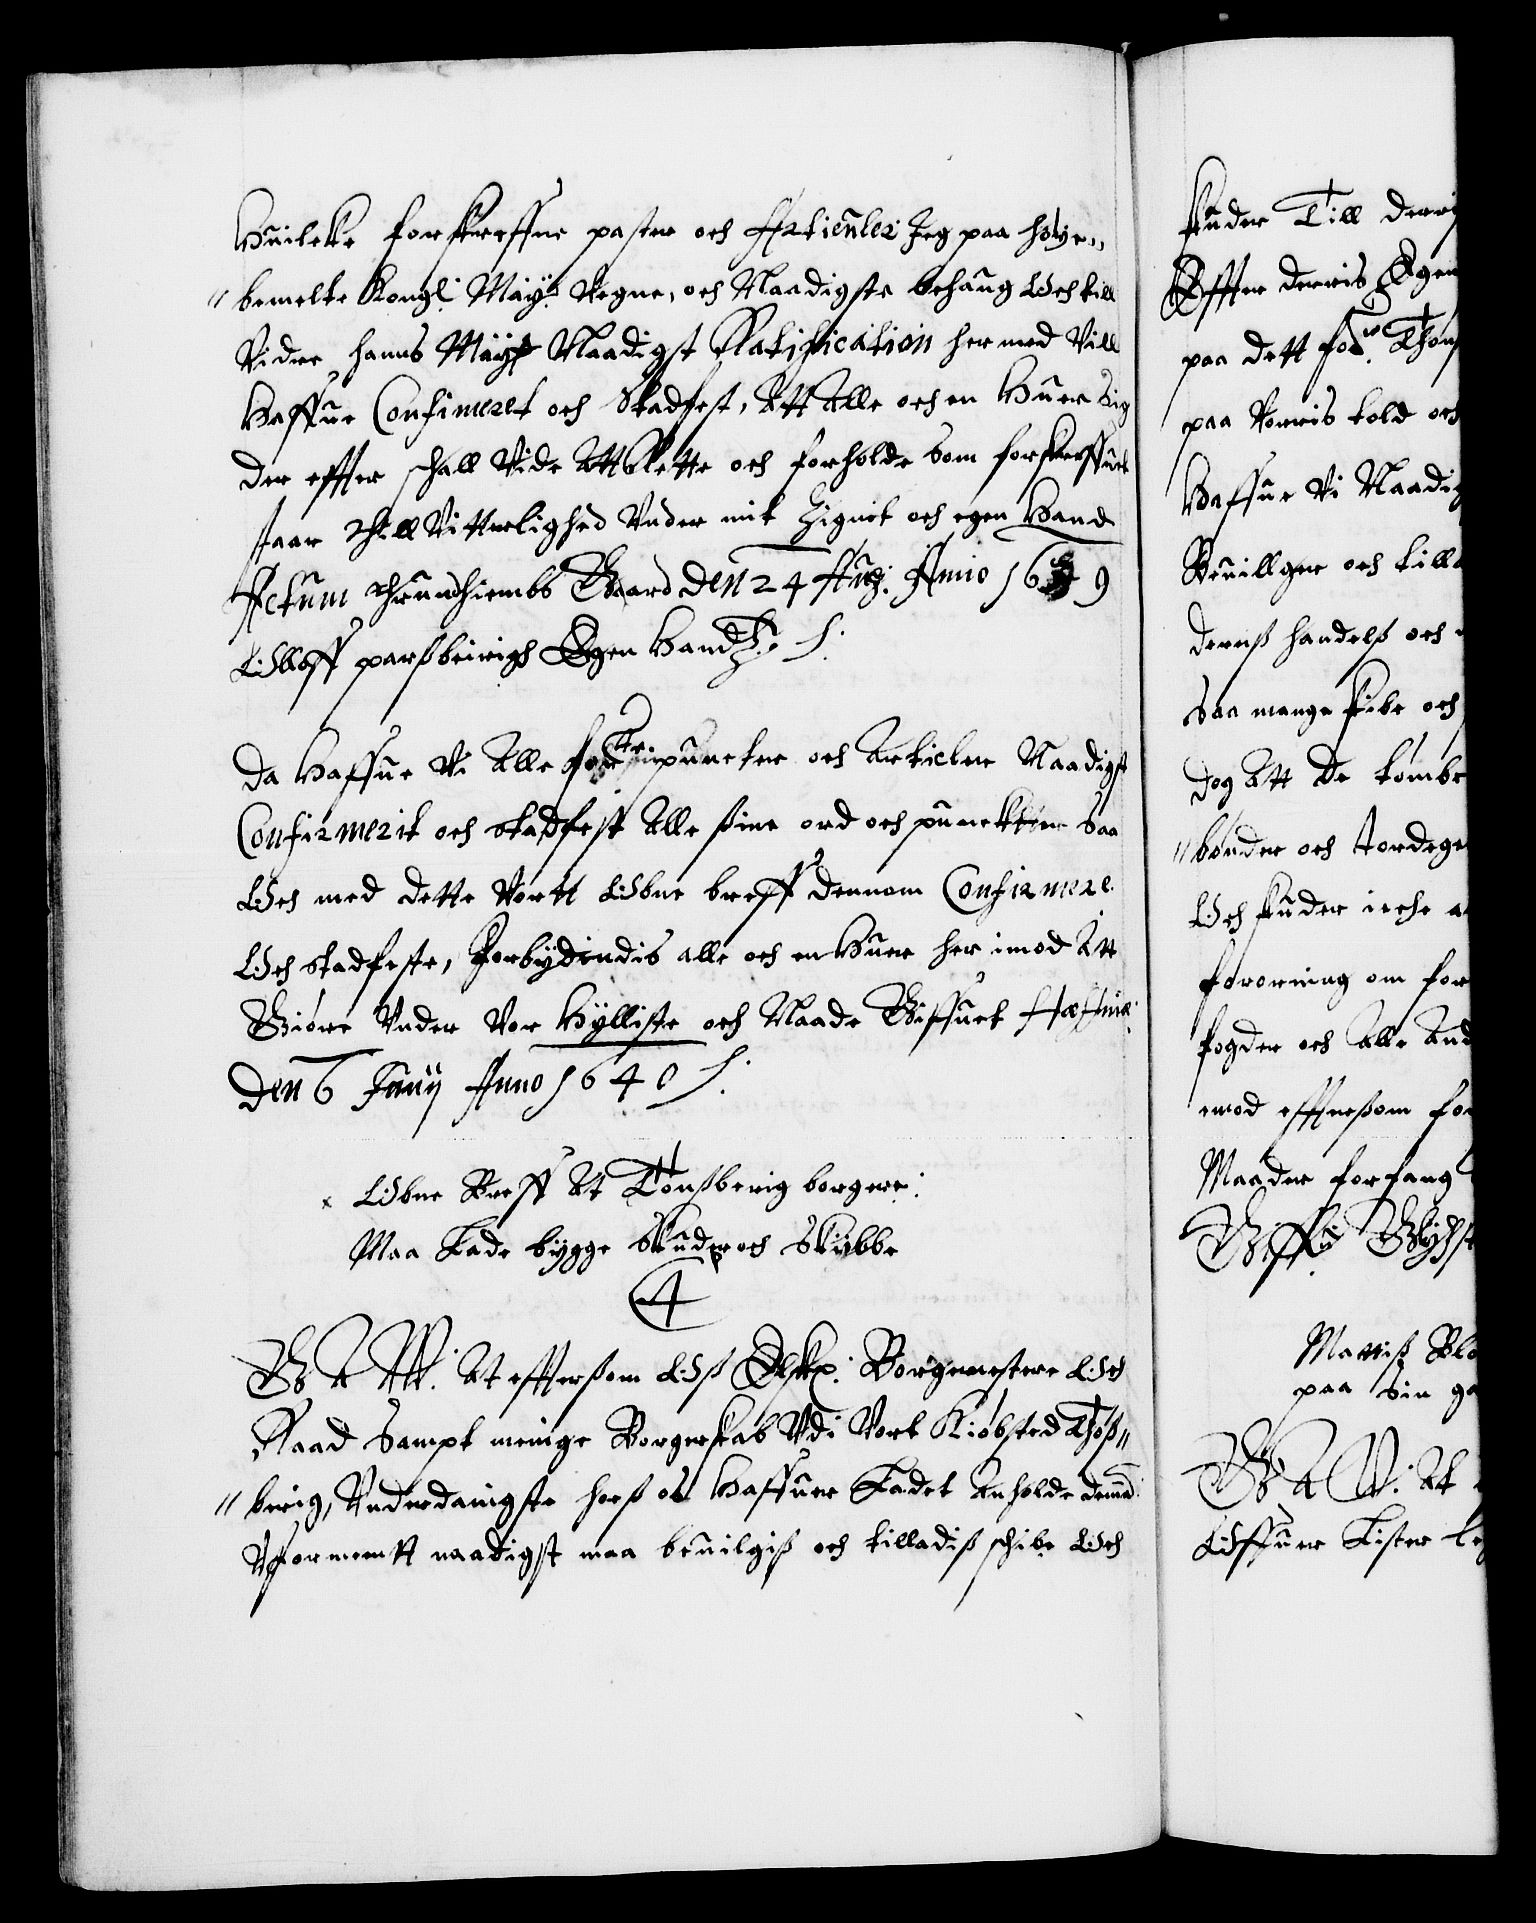 Huilcke forskreffne paster och Articuler Jeg paa høye,,
,,bemelte Kongl: Mäy: Vegne, och Naadigste behaug Och till
Videre hanns Mäytz Naadigst Ratification her med Vill
Haffue Confirmeret och Stadfest, Att Alle och en Huer Sig
der effter schall Vide Att Rette och forholde Som forskreffuit
staar Thill Vitterlighed Vnder mit Zignet och egen Hand
Actum Thrundhiembs Gaard den 24 Aug: Anno 1639
Olloff parßbeirigh Egen Handtz: /:
Da Haffue Vi Alle forne puncter och Articler Naadigst
Confirmerit och stadfest Alle ßine ord och puncter Saa
Och med dette Vortt Obne breff dennom Confirmere
Och stadfeste, Forbydendis alle och en Huer her imod Att
Giøre Vnder Vor Hylliste och Naade Giffuet Haffniæ
den 6 Juny Anno 1640 /:
Obne Breff At Tonßberig borgere
Maa Lade bygge Skuder och Skibbe
4
G A W: At effterßom Oß Elskel: Borgemestere Och
Raad Sampt menige Borgerskab Vdi Vort Kiøbsted Thøß,,
,,berig, Vnderdanigste hoeß os Haffuer Ladet Anholde demed
Vformentt naadigst maa beuilgiß och tilladiß schibe Och
skuder Till derris
Effter derris Egen
paa dett for:ne Thons
paa Vorris told och
Haffue Vi Naadig
Beuillget och till
derriß handelß och
Saa mange skibe och
dog Att De tømbe
,,bønder och Jordege
Och skuder icche a
forordning om for
fogder och Alle And
emod effterßom for
Maader forfang
Giffu Glychst
Mauriß Blo
paa Sin ga
G A W: At
Offuer Lister le